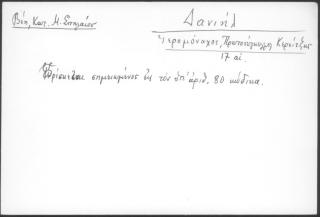 Βέη, Κατ. Μ. Σπηλαίου
Δανιήλ
Ἱερομόναχος, Πρωτοσύγκελλος Κερνίτζης
17 αἰ.
Εὑρίσκεται σημειωμένος εἰς τὸν ὑπ' ἀριθ. 80 κώδικα.